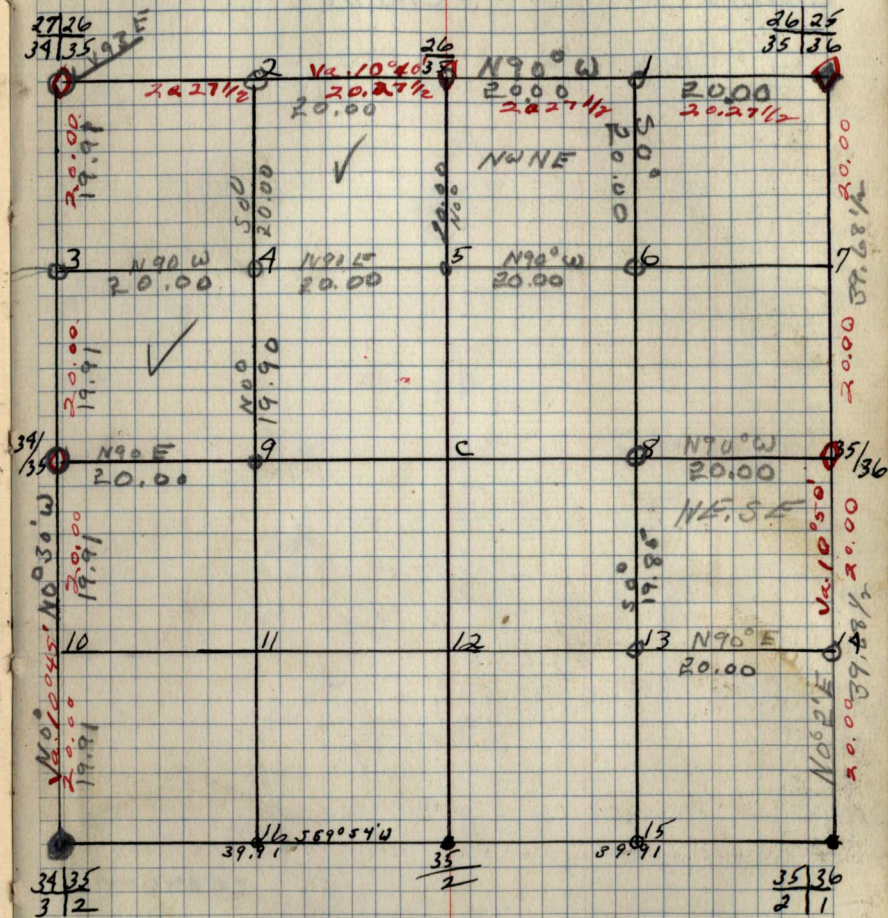 27|26
34|35
26
35
26|25
35|36
2
Va. 10°40'
N90°W
1
20 27 1/2
20.27 1/2
20.00
20.00
20 27 1/2
20.00
20.27 1/2
20.00
19.91
S00
20.00
✓
20.00
N0°
NWNE
S0°
20.00
20.00
39.68 1/2
3
N90 W
20.00
4
N90 E
20.00
5
N90°W
20.00
6
7
20.00
19.91
✓
N0°
19.90
20.00
34/35
N90 E
20.00
9
C
8
N90°W
20.00
35/36
NE.SE
N0°30'W
20.00
19.91
S0°
19.80
Va. 10°50'
20.00
39.68 1/2
10
11
12
13
N90°E
20.00
14
N0°
Va. 10°45'
20.00
19.91
N0°2'E
20.00
16
S89°54'W
15
39.91
39.91
34|35
3|2
35
2
35|36
2|1